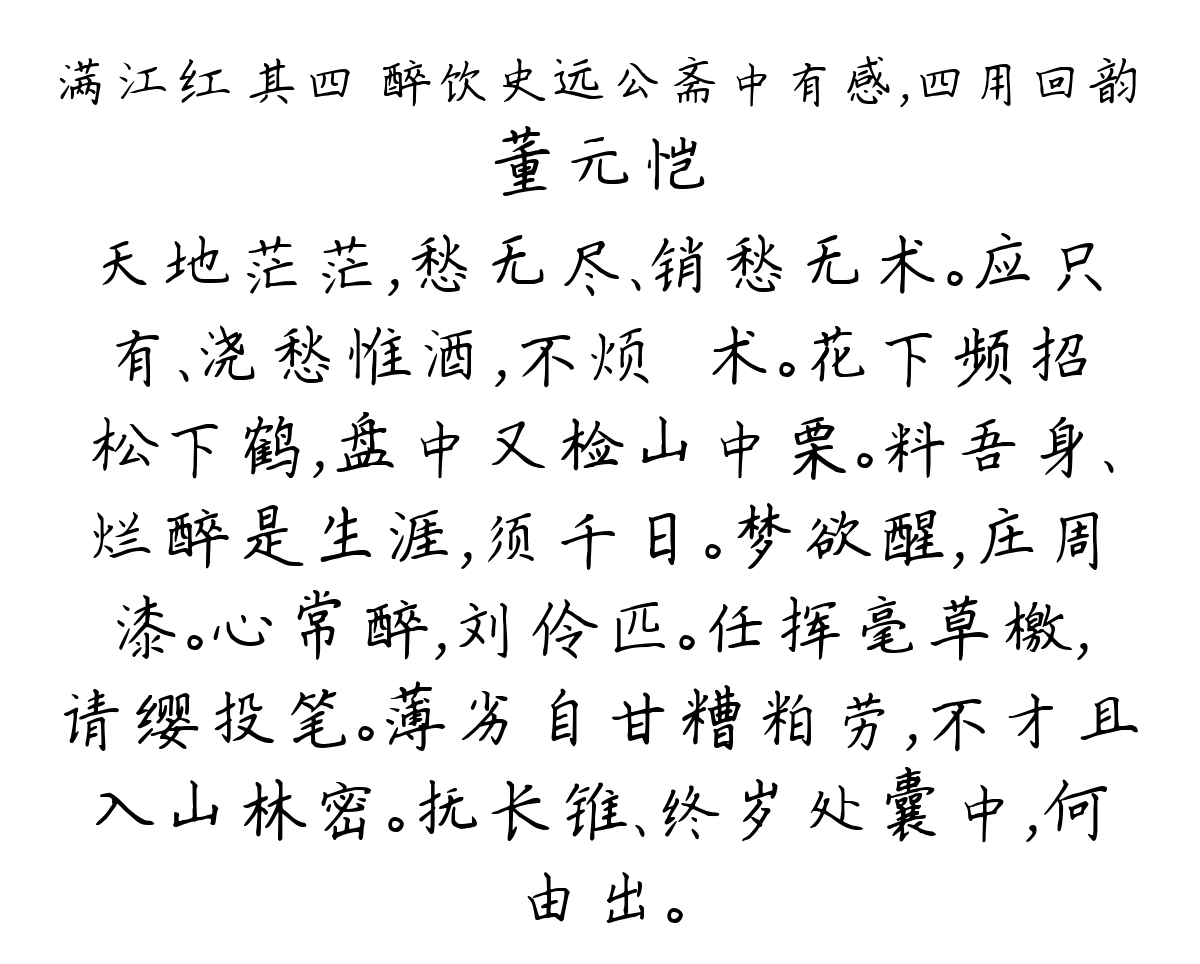 满江红 其四 醉饮史远公斋中有感,四用回韵
董元恺
天地茫茫,愁无尽、销愁无术。应只
有、浇愁惟酒,不烦 术。花下频招
松下鹤,盘中又检山中栗。料吾身、
烂醉是生涯,须千日。梦欲醒,庄周
漆。心常醉,刘伶匹。任挥毫草檄,
请缨投笔。薄劣自甘糟粕劳,不才且
入山林密。抚长锥、终岁处囊中,何
由出。